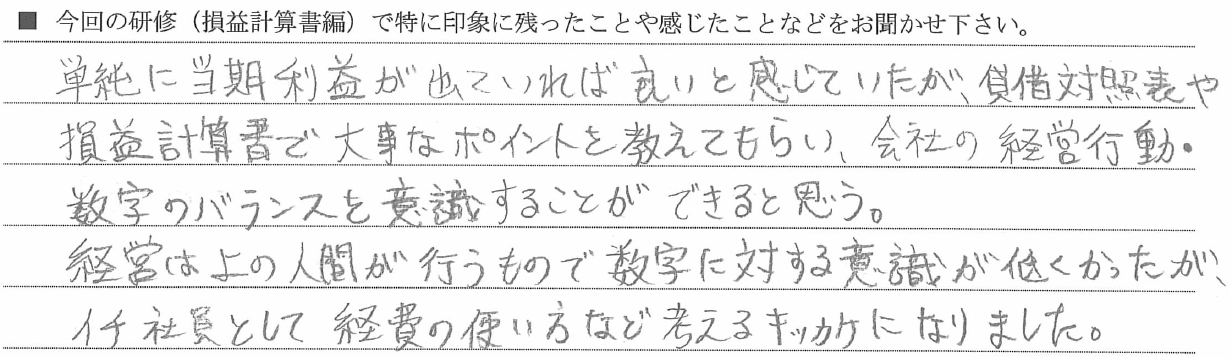 ■ 今回の研修（損益計算書編）で特に印象に残ったことや感じたことなどをお聞かせ下さい。
単純に当期利益が出ていれば良いと感じていたが、貸借対照表や
損益計算書で大事なポイントを教えてもらい、会社の経営行動・
数字のバランスを意識することができると思う。
経営は上の人間が行うもので数字に対する意識が低くかったが、
イチ社員として経費の使い方など考えるキッカケになりました。